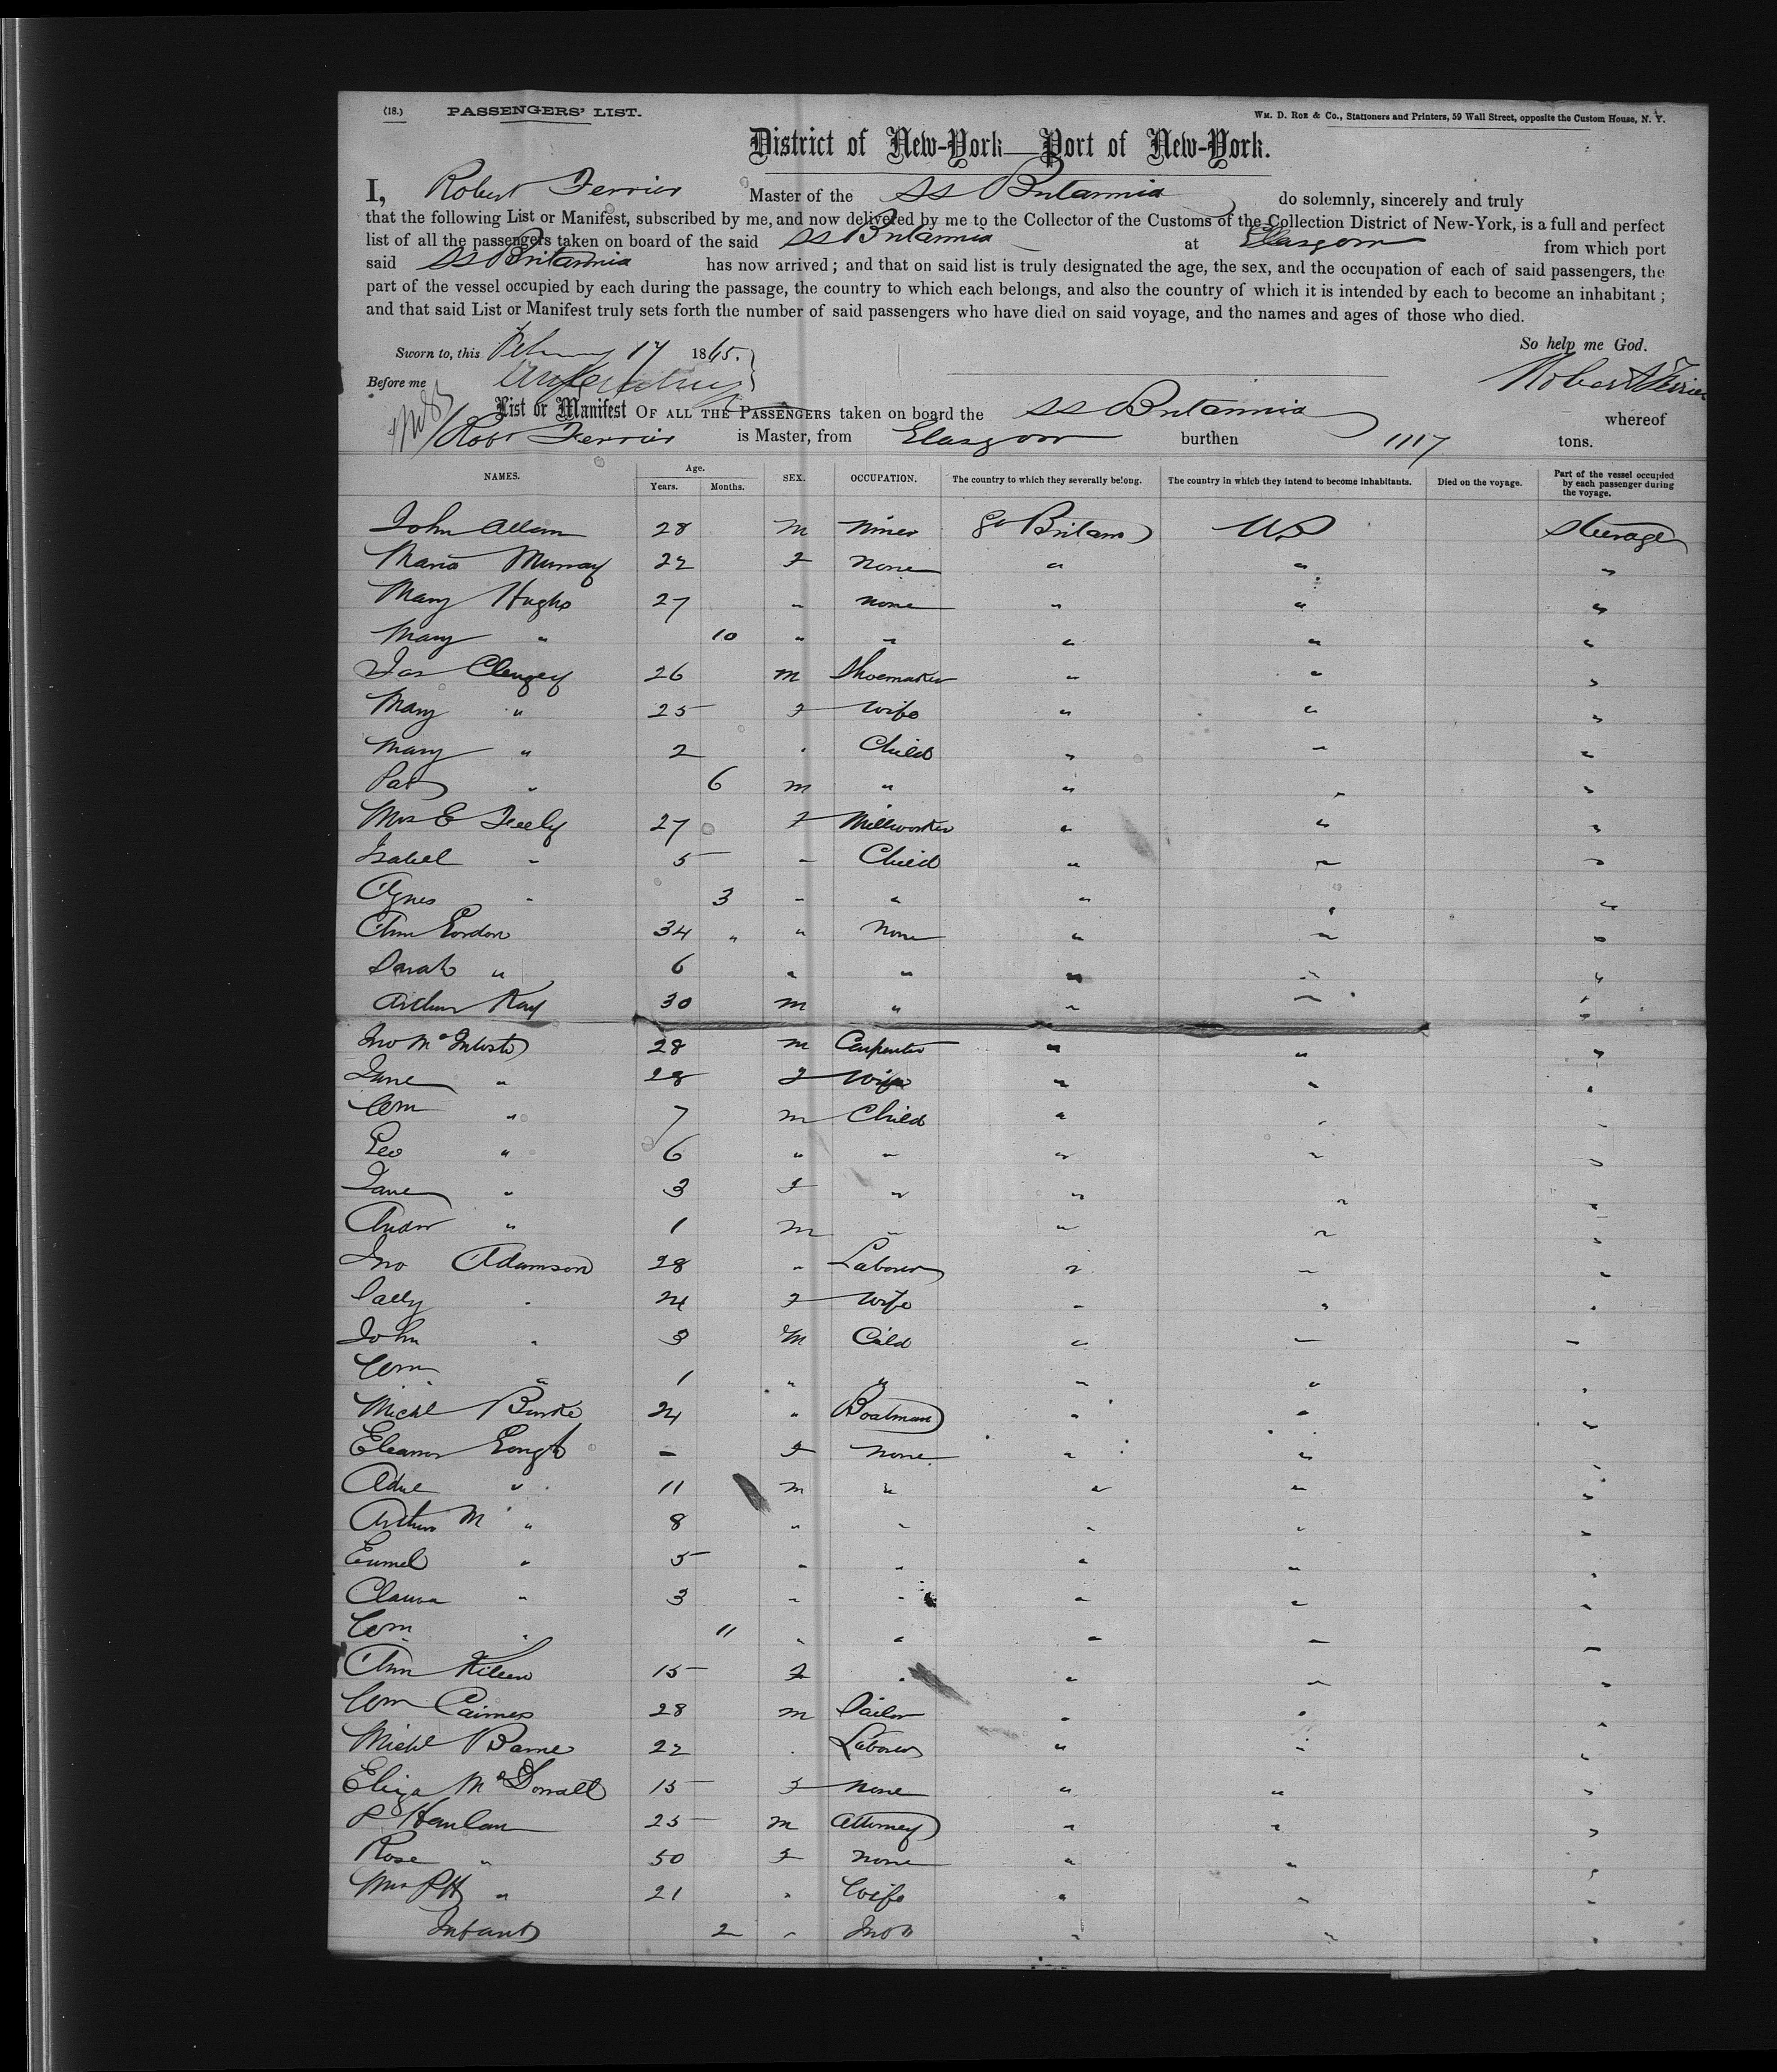 (18.) PASSENGERS' LIST. Wm. D. Roe & Co., Stationers and Printers, 59 Wall Street, opposite the Custom House, N. Y.
District of New-York—Port of New-York.
I, Robert Ferrier Master of the SS Britannia do solemnly, sincerely and truly
that the following List or Manifest, subscribed by me, and now delivered by me to the Collector of the Customs of the Collection District of New-York, is a full and perfect
list of all the passengers taken on board of the said SS Britannia at Glasgow from which port
said SS Britannia has now arrived; and that on said list is truly designated the age, the sex, and the occupation of each of said passengers, the
part of the vessel occupied by each during the passage, the country to which each belongs, and also the country of which it is intended by each to become an inhabitant;
and that said List or Manifest truly sets forth the number of said passengers who have died on said voyage, and the names and ages of those who died.
Sworn to, this 17 1865. So help me God.
Before me Robert Ferrier
List or Manifest OF ALL THE PASSENGERS taken on board the SS Britannia whereof
Robt Ferrier is Master, from Glasgow burthen 1117 tons.
NAMES. Age. Years. Months. SEX. OCCUPATION. The country to which they severally belong. The country in which they intend to become inhabitants. Died on the voyage. Part of the vessel occupied by each passenger during the voyage.
John Allan 28 M Miner Gt Britain US Steerage
Maria Murray 22 F None " " "
Mary Hughs 27 " None " " "
Mary " 10 " " " " "
Jas 26 M Shoemaker " " "
Mary " 25 F Wife " " "
Mary " 2 " Child " " "
Pat " 6 M " " " "
Mrs E Feely 27 F Millworker " " "
Isabel " 5 " Child " " "
Agnes " 3 " " " " "
Ann Gordon 34 " " None " " "
Sarah " 6 " " " " "
Arthur Kay 30 M " " " "
Jno 28 M Carpenter " " "
Jane " 28 F Wife " " "
Wm " 7 M Child " " "
Geo " 6 " " " " "
Jane " 3 F " " " "
Andw " 1 M " " " "
Jno Adamson 28 " Laborer " " "
Sally " 24 F Wife " " "
John " 3 M Cild " " "
Wm " 1 " " " " "
Michl Burke 24 " Boatman " " "
Eleanor - F None " " "
" 11 M " " " "
Arthur M " 8 " " " " "
" 5 " " " " "
" 3 " " " " "
Wm " 11 " " " " "
Ann Kileen 15 F " " " "
Wm Cairnes 28 M Sailor " " "
Michl 22 " Laborer " " "
Eliza 15 F None " " "
P Hanlan 25 M Attorney " " "
Rose " 50 F None " " "
Mrs PH " 21 " Wife " " "
Infant 2 " " " "